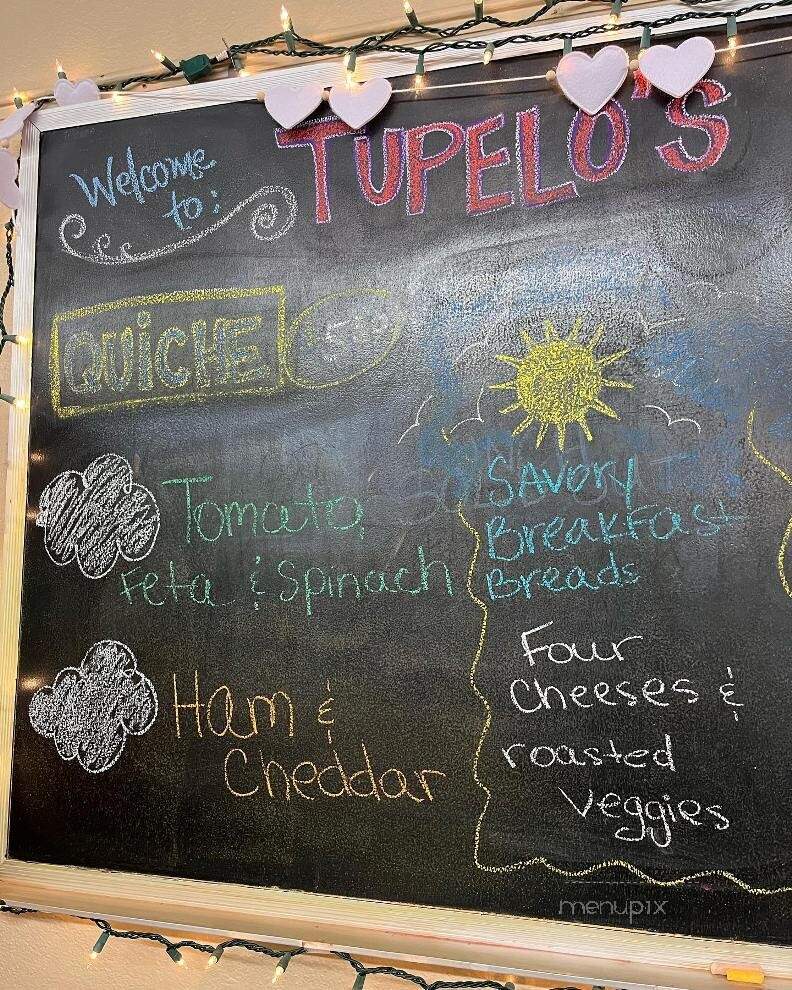 Welcome
to:
TUPELO'S
QUiCHE
Tomato,
Feta & Spinach
Ham &
Cheddar
SAvory
BreakFast
Breads
Four
Cheeses &
roasted
Veggies
menupix